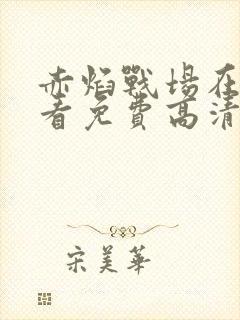 赤焰戰場在
看免費高清
宋美華